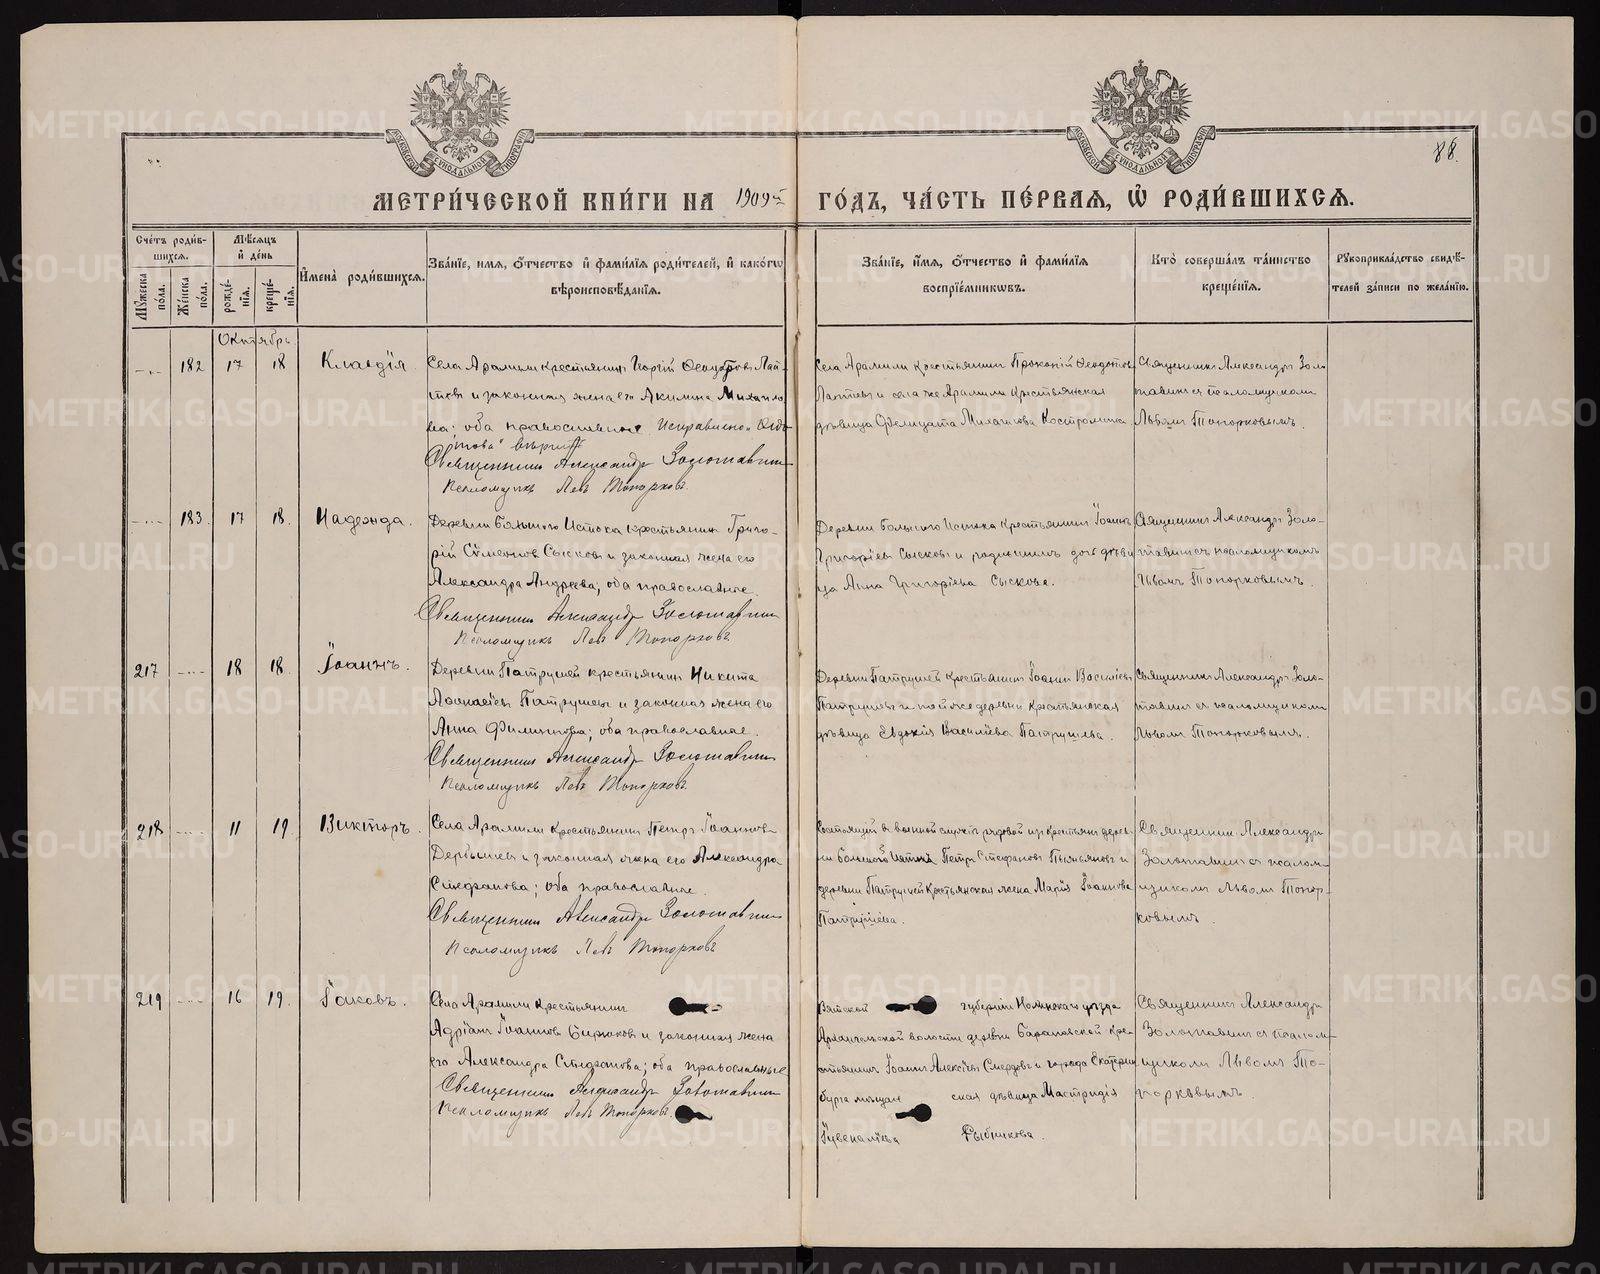 МОСКОВСКОЙ СѴНОДАЛЬНОЙ ТИПОГРАФІИ
МОСКОВСКОЙ СѴНОДАЛЬНОЙ ТИПОГРАФІИ
88.
МЕТРИ́ЧЕСКОЙ КНИ́ГИ НА 1909й ГО́ДЪ, ЧА́СТЬ ПЕ́РВАЯ, Ѡ РОДИ́ВШИХСЯ.
Сче́тъ роди́в-
шихся.
Мꙋ́жеска по́ла.
Же́нска по́ла.
Мѣ́сяцъ и де́нь
рожде́-нія.
креще́-нія.
Имена̀ роди́вшихся.
Зва́ніе, имя, о́тчество и фами́лія роди́телей, и како́гѡ
вѣроисповѣ́данія.
Зва́ніе, и́мя, о́тчество и фами́лія
воспріе́мникѡвъ.
Кто̀ соверша́лъ та́инство
креще́нія.
Рꙋкоприкла́дство свидѣ́-
телей за́писи по жела́нію.
Октябрь
182 17 18 Клавдія
Села Арамили крестьянинъ Георгій Ѳеодотовъ Лап-
тевъ и законная жена его Акилина Михайло
ва; оба православные. Исправленно „Ѳедо
това" вѣрно
Священникъ Александръ Золотавинъ
Псаломщикъ Левъ Топорковъ.
Села Арамили крестьянинъ Прокопій Ѳеодотовъ
Лаптевъ и села же Арамили крестьянская
дѣвица Костромина
Священникъ Александръ Золо
тавинъ съ псаломщикомъ
Львомъ Топорковымъ.
183. 17 18. Надежда.
Деревни Большого Истока крестьянинъ Григо-
рій Сѵмеоновъ Сысковъ и законная жена его
Александра Андреева; оба православные.
Священникъ Александръ Золотавинъ
Псаломщикъ Левъ Топорковъ.
Деревни Большого Истока крестьянинъ Іоаннъ
Григорьевъ Сысковъ и дѣви
ца Анна Григоріева Сыскова.
Священникъ Александръ Золо-
тавинъ съ псаломщикомъ
Львомъ Топорковымъ.
217 18 18 Іоаннъ.
Деревни Патрушей крестьянинъ Никита
Аѳонасіевъ Патрушевъ и законная жена его
Анна Филиппова; оба православные.
Священникъ Александръ Золотавинъ
Псаломщикъ Левъ Топорковъ.
Деревни Патрушей крестьянинъ Іоаннъ Василіевъ
Патрушевъ и той же деревни крестьянская
дѣвица Евдокія Василіева Патрушева.
Священникъ Александръ Золо-
тавинъ съ псаломщикомъ
Львомъ Топорковымъ.
218 11 19 Викторъ.
Села Арамили крестьянинъ Петръ Іоанновъ
Дербышевъ и законная жена его Александра
Стефанова; оба православные.
Священникъ Александръ Золотавинъ
Псаломщикъ Левъ Топорковъ
Состоящій въ военной службѣ рядовой изъ крестьянъ дерев-
ни Большой Истокъ Петръ Стефановъ и
деревни Патрушей крестьянская жена Марія Іоаннова
Патрушева.
Священникъ Александръ
Золотавинъ съ псалом-
щикомъ Львомъ Топор-
ковымъ.
219 16 19. Іаковъ.
Села Арамили крестьянинъ
Адріанъ Іоанновъ Бирюковъ и законная жена
его Александра Стефанова; оба православные
Священникъ Александръ Золотавинъ
Псаломщикъ Левъ Топорковъ.
Вятской губерніи Нолинскаго уѣзда
Архангельской волости деревни Барановской кре-
стьянинъ Іоаннъ Алексіевъ Смердовъ и города Екатерин
бурга мѣщан ская дѣвица Мастридія
Іувеналіева Рыбникова.
Священникъ Александръ
Золотавинъ съ псалом-
щикомъ Львомъ То-
порковымъ.
METRIKI.GASO-URAL.RU